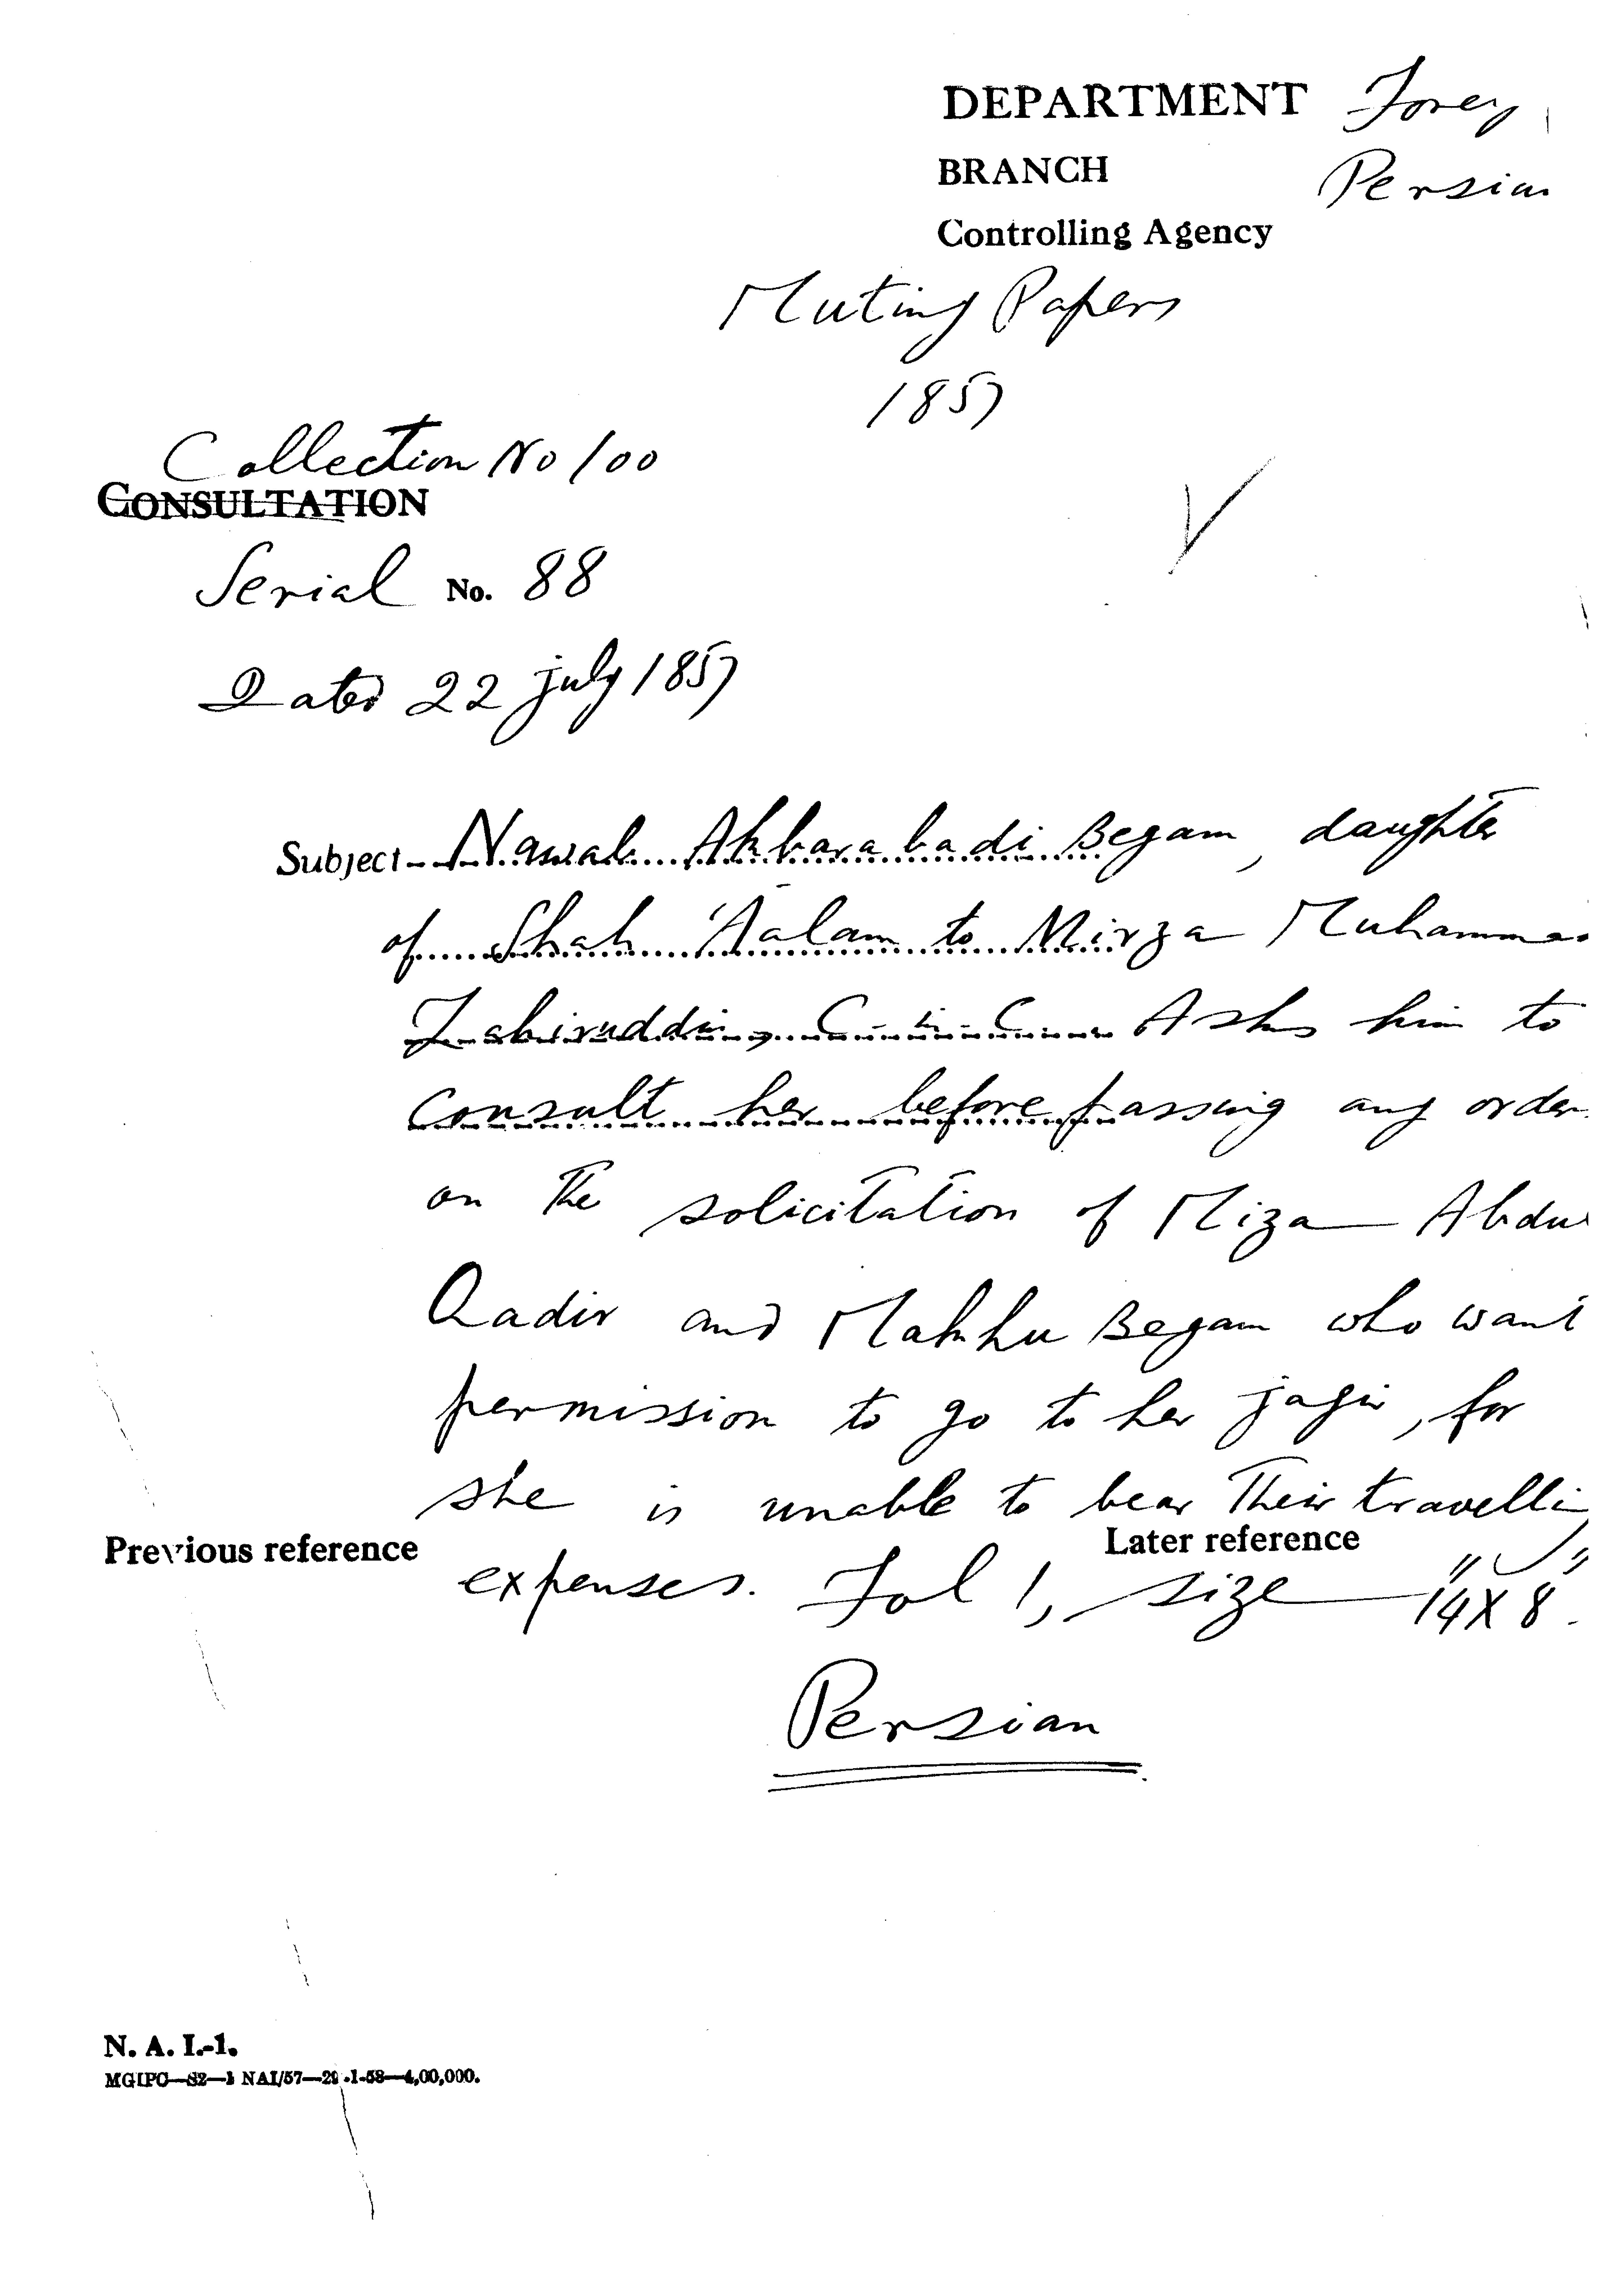 DEPARTMENT Foreig
BRANCH Persian
Controlling Agency
Mutiny Papers
1857
Collection No 100
CONSULTATION
Serial No. 88
Dated 22 july 1857
Subject Nawab Akbarabadi Begam, daughter
of Shah 'Aalam to Mirza Muhammad
Zahiruddin, C-in-C. Asks him to
consult her before passing any order
on the solicitation of Miza Abdul
Qadir and Makhu Begam who want
permission to go to her jagir, for
she is unable to bear their travelling
Previous reference
Later reference
expenses. Fol 1, size 14" X 8".
Persian
N. A. I.-1.
MGIPC—S2—1 NAI/57—29-1-58—4,00,000.